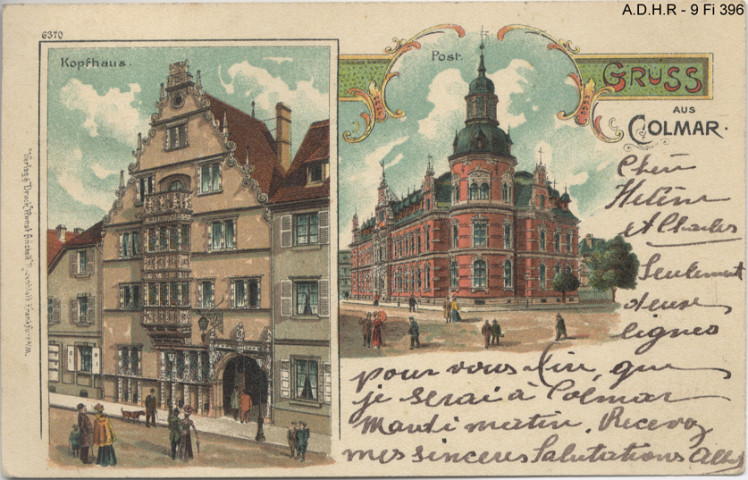 A.D.H.R - 9 Fi 396
6370
Kopfhaus.
Post.
GRUSS
AUS
COLMAR.
Cher
Helène
et Charles
Seulement
deux
lignes
pour vous dire, que
je serai à Colmar
Mardi matin. Recevez
mes sincères Salutations